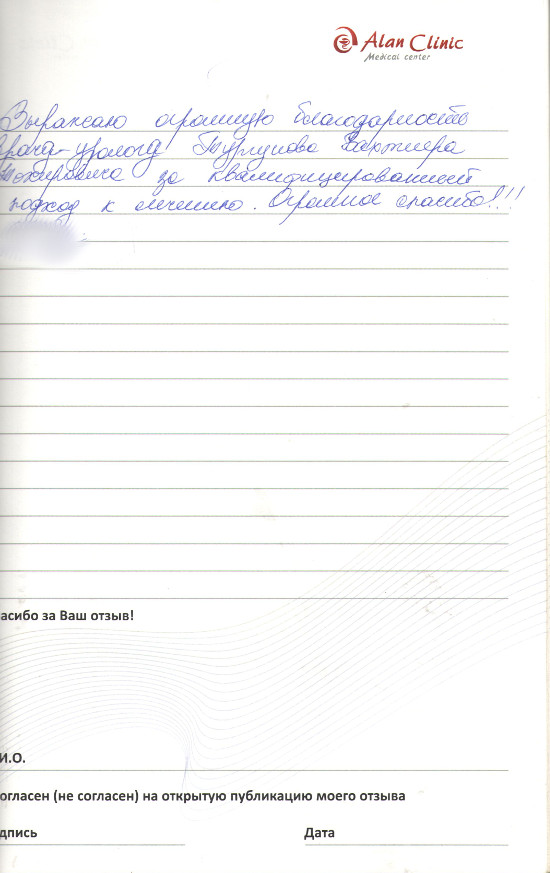 Alan Clinic
Medical center
Выражаю огромную благодарность
врачу-урологу
за квалифицированный
подход к лечению. Огромное спасибо!!!
асибо за Ваш отзыв!
И.О.
огласен (не согласен) на открытую публикацию моего отзыва
дпись Дата